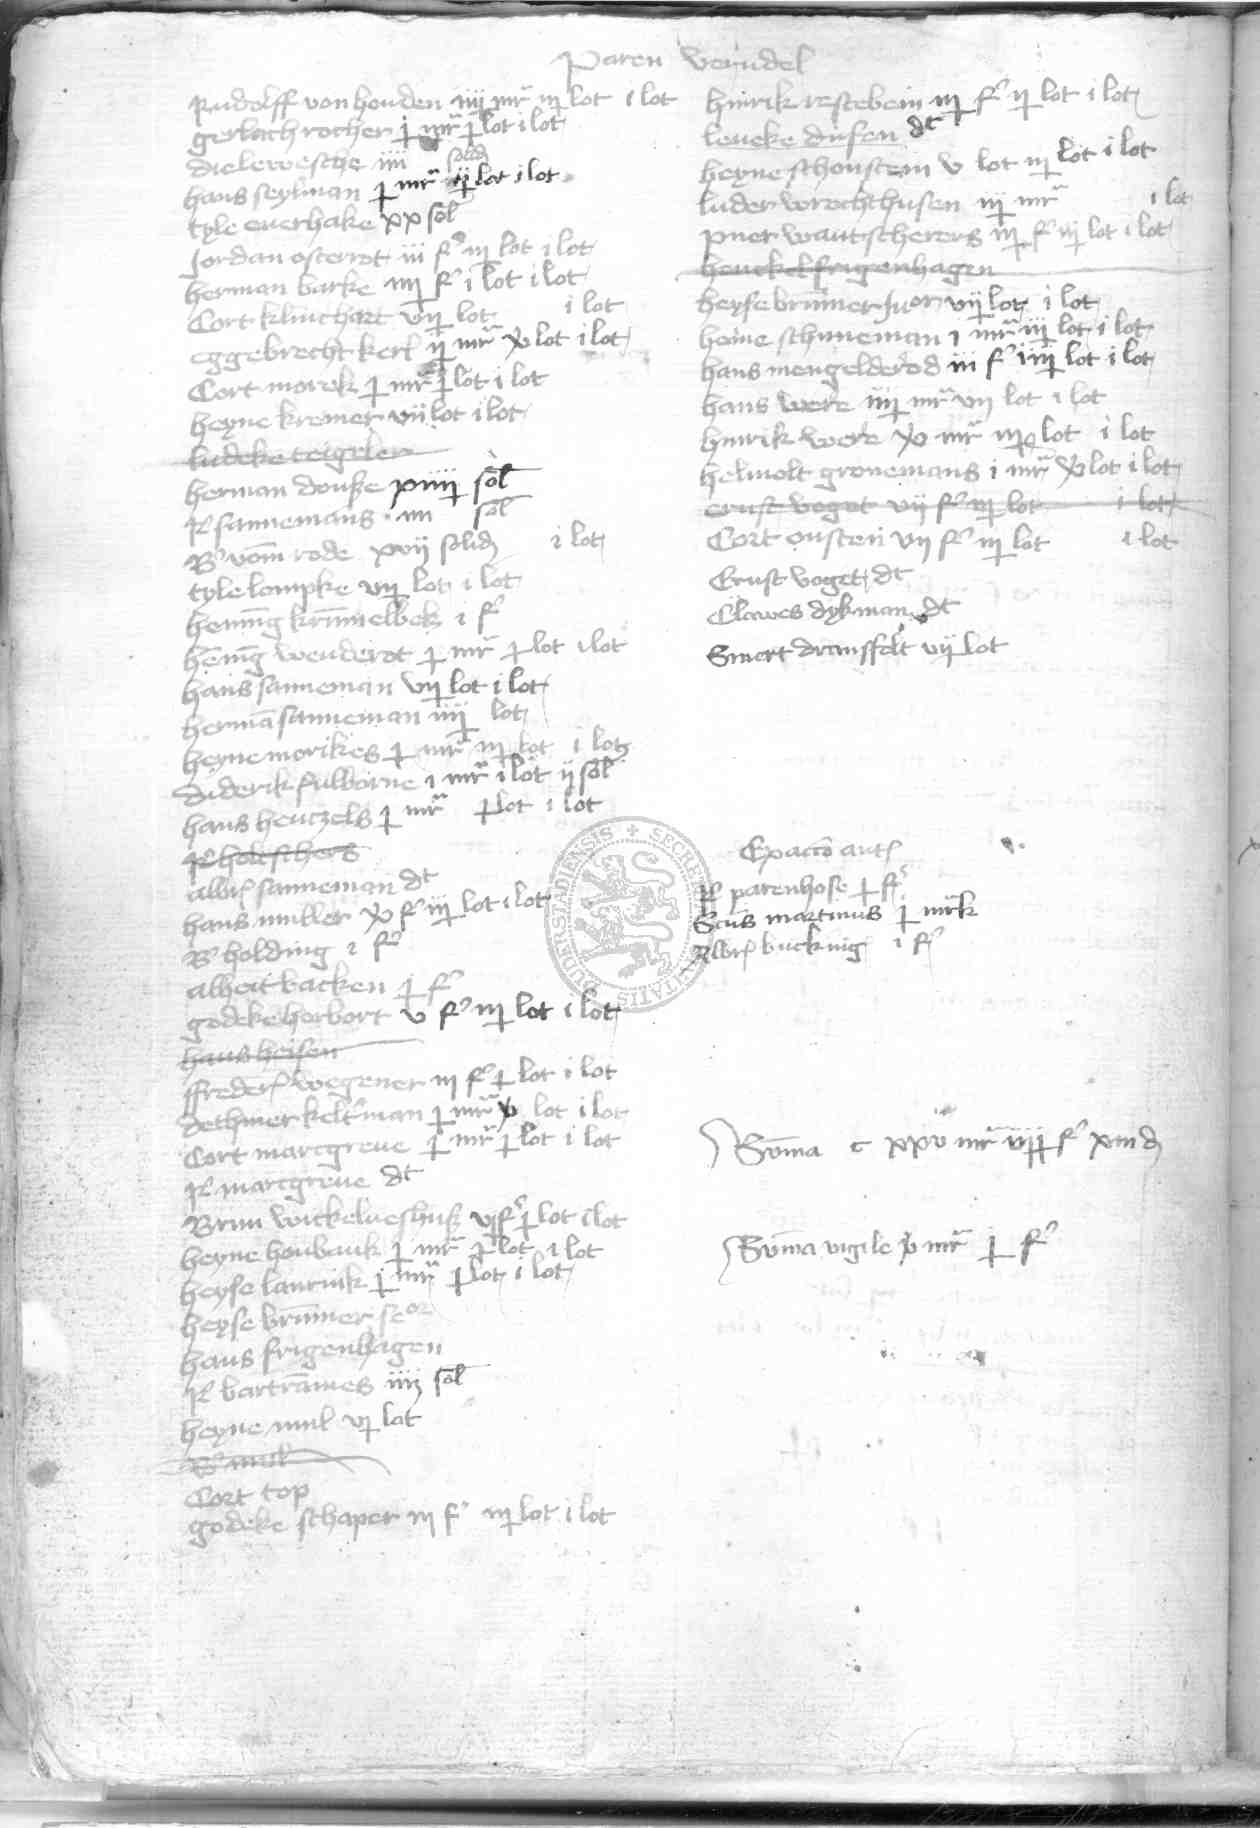 Paren verndel
Rudolff von honden iiij mr iij lot i lot
gerlach rocher j mr j lot i lot
dele wesche iiii solid
hans seyman j mr ij lot i lot
tyle euerhake xx sol
Jordan osterrot iii f iij lot i lot
herman barke iiij f i lot i lot
Cort klinthart vij lot i lot
eggebrecht kerl ij mr lot i lot
Cort marck j mr j lot i lot
heyne kremer vii lot i lot
ludeke teigeler
herman donße sol
R sannemans iiii sol
B vom rode xvii solid i lot
tyle lampke vij lot i lot
henning krummelbek i f
henig wenderot j mr j lot i lot
hans sanneman vij lot i lot
herman sanneman iiij lot
heyne morikes j mr iij lot i lot
diderik fulborne i mr i lot ij sol
hans hentzels j mr j lot i lot
R holtschers
albr sanneman dt
hans muller f iij lot i lot
B holding i f
alheit backen j f
godeke herbort v f iij lot i lot
hans heisen
ffreder wegener iij f j lot i lot
dethmer keltman j mr lot i lot
Cort marcgreue j mr j lot i lot
R marcgreue dt
Brun wickelueshuß f j lot i lot
heyne honbank j mr j lot i lot
heyse lamnik j mr j lot i lot
heyse brunner se or
hans frigenhagen
R bartrames iiij sol
heyne mul vj lot
B mul
Cort top
godeke schaper iij f iij lot i lot
hinrik restebein iij f ij lot i lot
leneke dusen dt
heyne schonstein v lot iij lot i lot
luder wrechthusen iij mr i lot
puer wantscherers iij f iij lot i lot
henckel frigenhagen
heyse brunner Juor vij lot i lot
heine schuneman i mr iij lot i lot
hans mengelderod iii f iiij lot i lot
hans were iiij mr vij lot i lot
hinrik were mr iij lot i lot
helmolt gronemans i mr lot i lot
ernst voget vij f iij lot i lot
Cort onsten vij f iij lot i lot
Ernst voget dt
Clawes dykman dt
Smert dransfelt vij lot
Ex acco ant
R patenhose j f
Scus martinus j mrk
Albr bucknig i f
Summa c xxv mr f d
Summa vigile mr j f